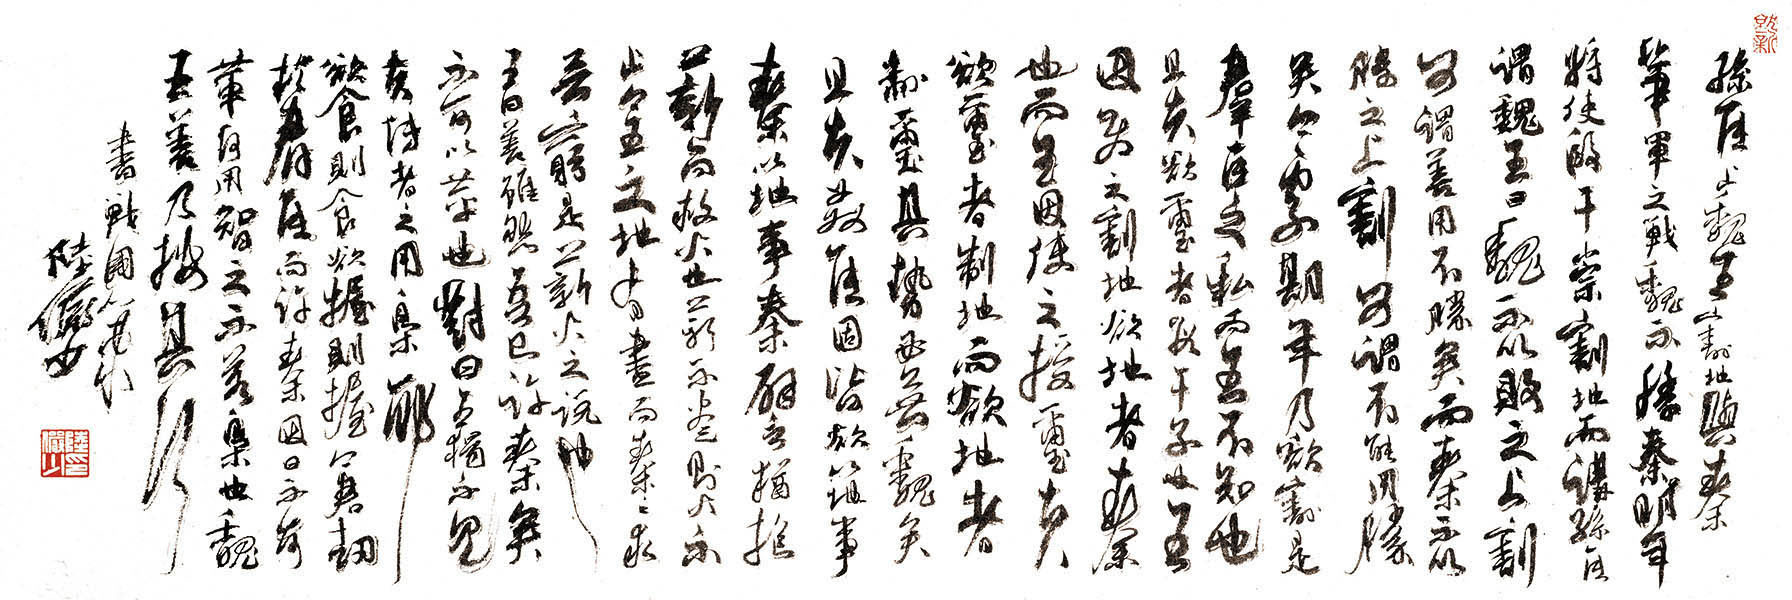 孫臣止魏王以割地與秦
華軍之戰魏不勝秦明年
將使段干崇割地而講孫臣
謂魏王曰魏不以敗之上割
可謂善用不勝矣而秦不以
勝之上割可謂不能用勝
矣今處期年乃欲割是
羣臣之私而王不知也
且夫欲璽者段干子也王
因使之割地欲地者秦
也而王因使之授璽夫
欲璽者制地而欲地者
制璽其勢必無魏矣
且夫奸臣固皆欲以地事
秦以地事秦譬猶抱
薪而救火也薪不盡則火不
止今王之地有盡而秦之求
無窮是薪火之說也
王曰善雖然吾已許秦矣
不可以革也對曰王獨不見
夫博者之用梟邪
欲食則食欲握則握今君劫
於羣臣而許秦因曰不可
革何用智之不若梟也魏
王善乃按其行
書戰國
陸儼少
陸印儼少